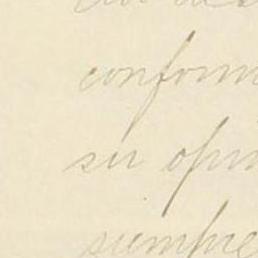 conform
su opin
siempre